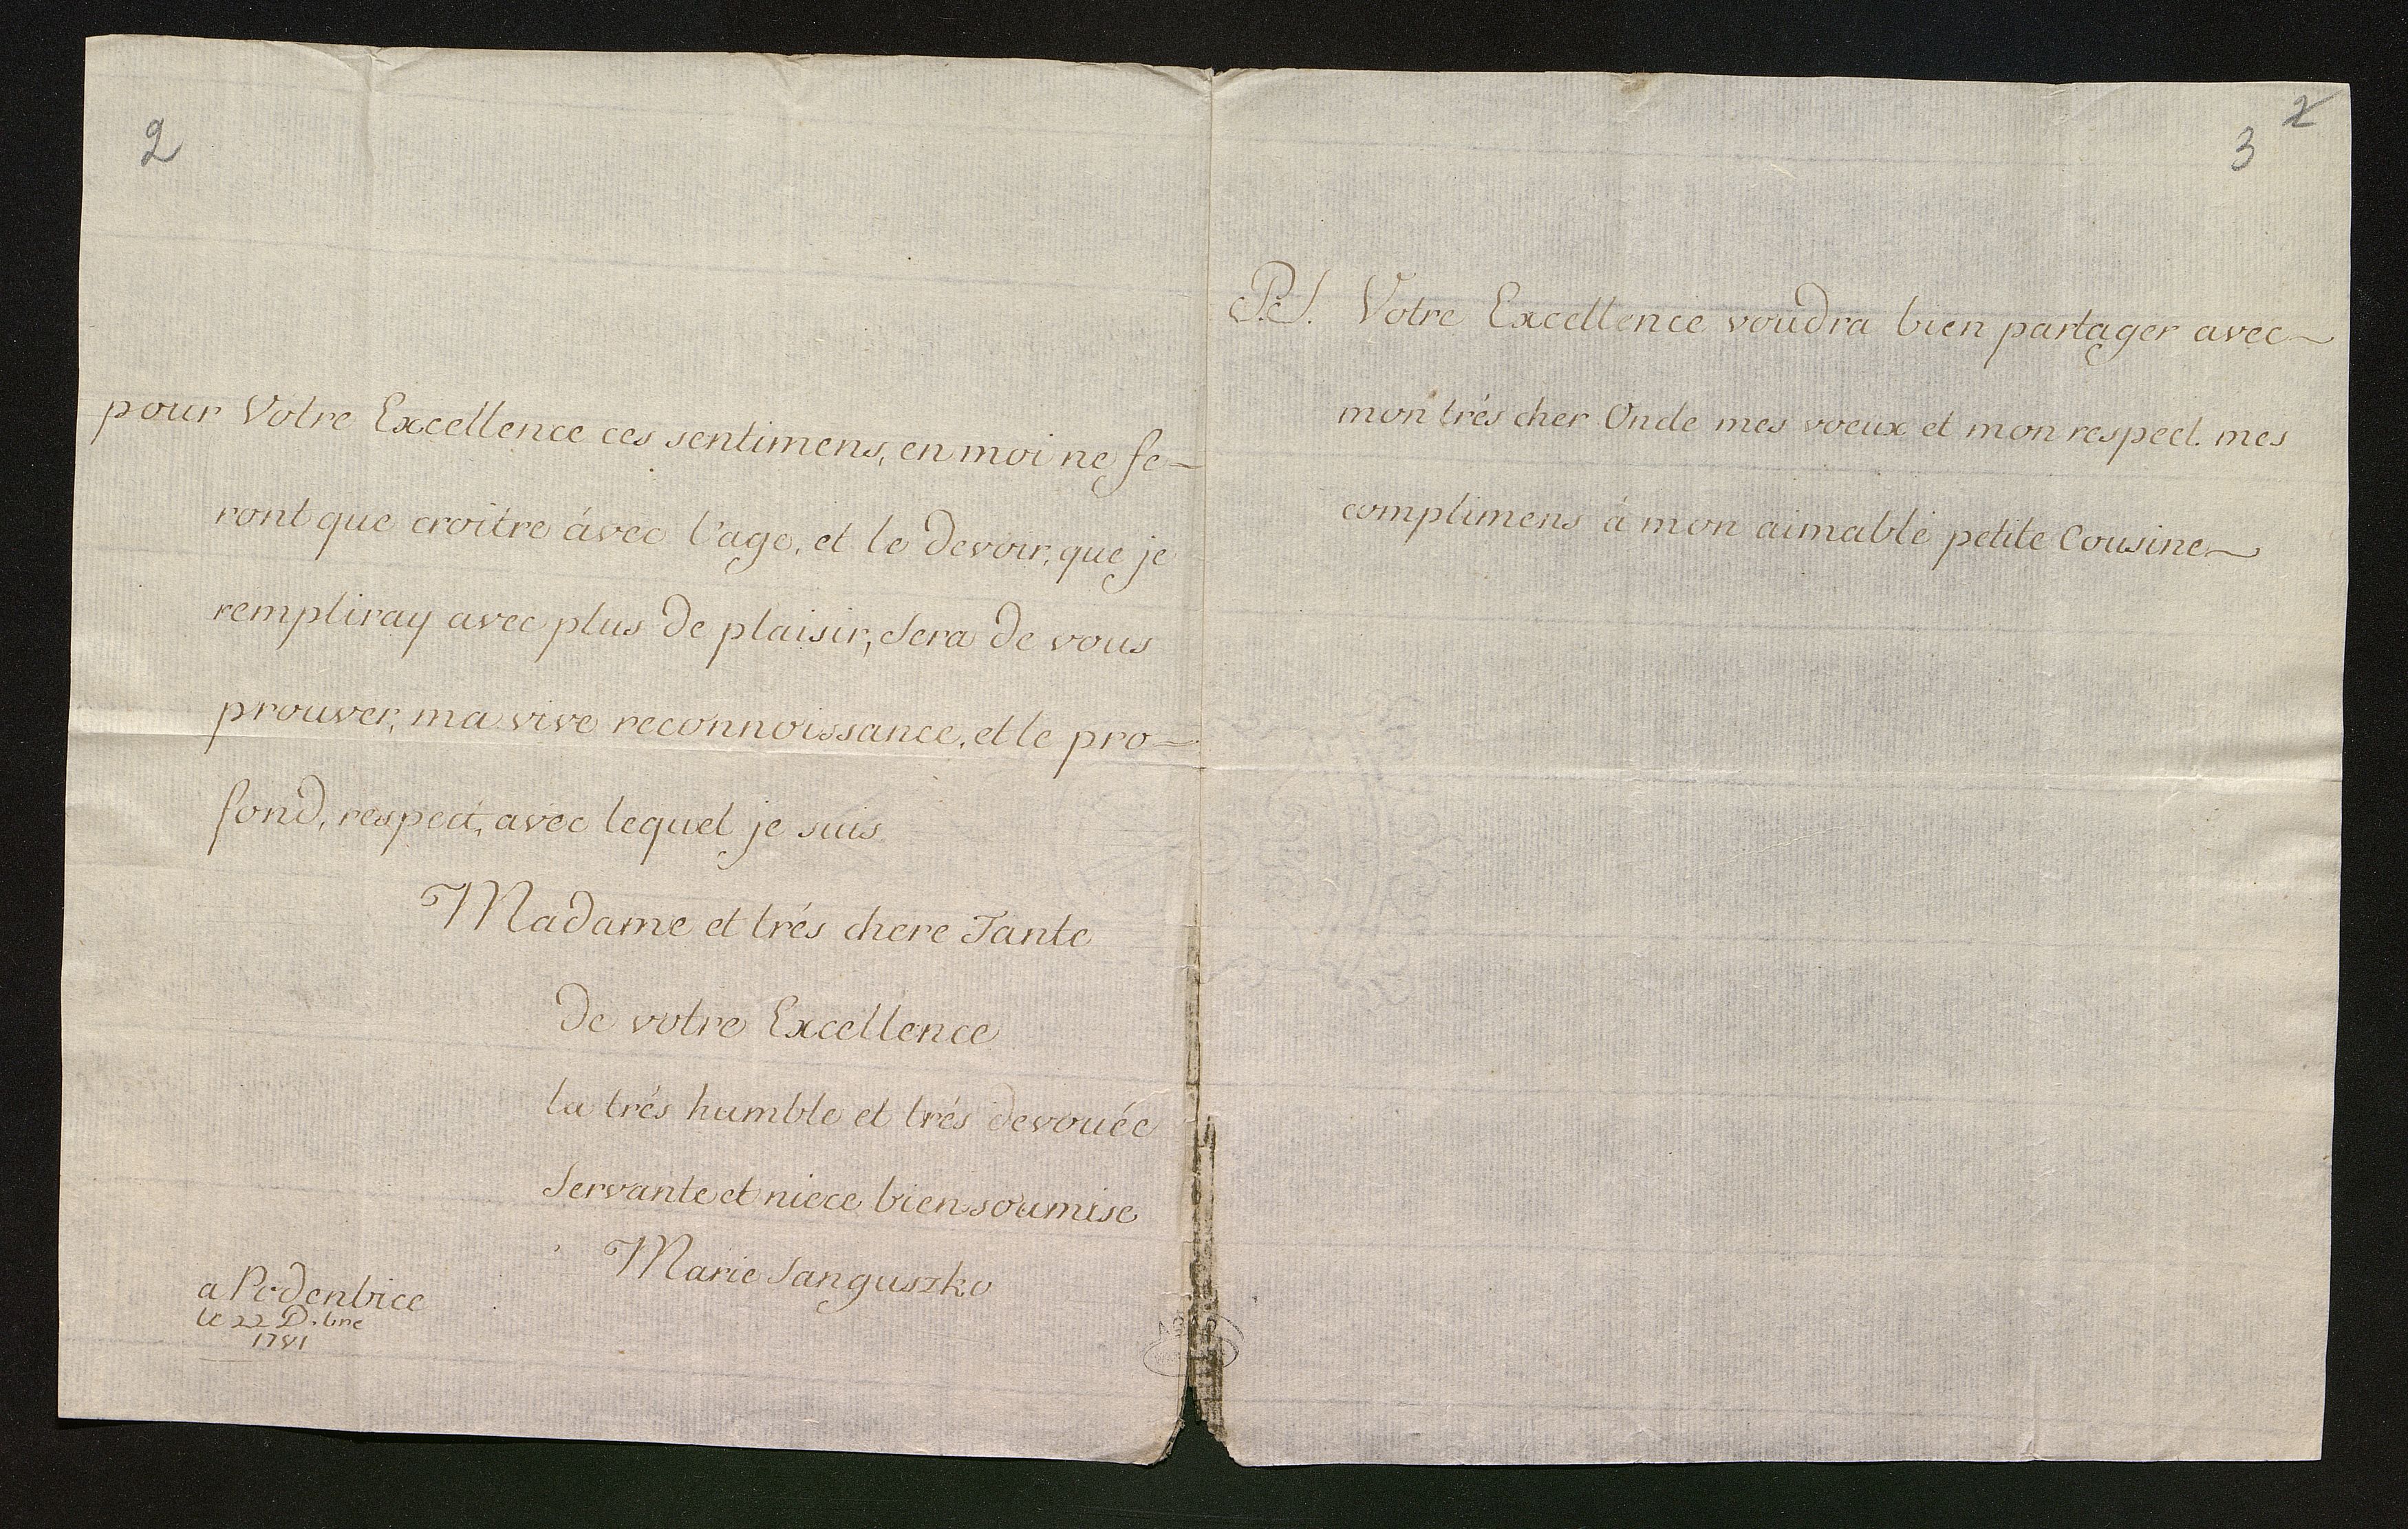 2
pour Votre Excellence ces sentimens, en moi ne fe-
ront que croitre ávec l'age, et le devoir, que je
rempliray avec plus de plaisir, Sera de vous
prouver, ma vive reconnoissance, et le pro-
fond, respect, avec lequel je suis
Madame et trés chere Tante
de votre Excellence
la trés humble et trés devouée
Servante et niece bien soumise
Marie Sanguszko
a Podenbice
le 22 D.bre
1781
2
3
P.S. Votre Excellence voudra bien partager avec
mon trés cher Oncle mes voeux et mon respect. mes
complimens á mon aimable petite Cousine